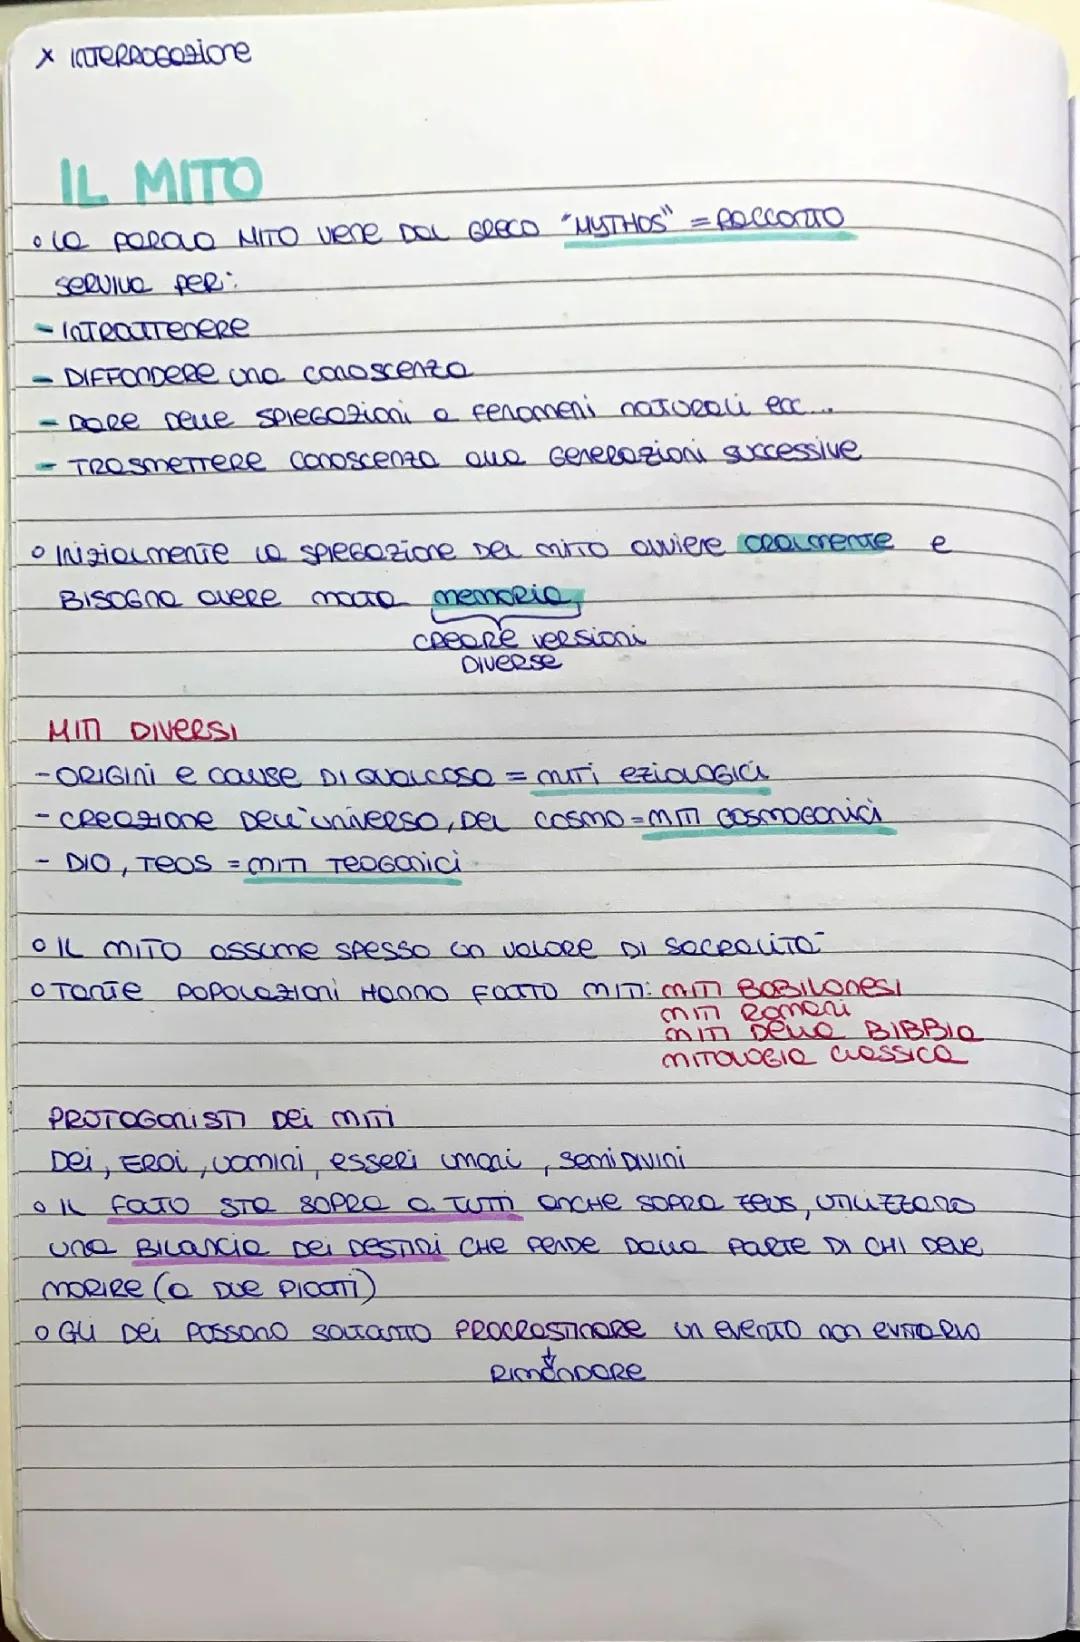 x INTERROGAZIONE
IL MITO
° LA PAROLA MITO VIENE DAL GRECO "MYTHOS" = RACCONTO
SERVIVA PER:
- INTRATTENERE
- DIFFONDERE UNA CONOSCENZA
- DARE DELLE SPIEGAZIONI A FENOMENI NATURALI ECC...
- TRASMETTERE CONOSCENZA ALLA GENERAZIONI SUCCESSIVE
° INIZIALMENTE LA SPIEGAZIONE DEL MITO AVVIENE ORALMENTE E
BISOGNA AVERE MOLTA MEMORIA,
CREARE VERSIONI
DIVERSE
MITI DIVERSI
- ORIGINI E CAUSE DI QUALCOSA = MITI EZIOLOGICI
- CREAZIONE DELL'UNIVERSO, DEL COSMO = MITI COSMOGONICI
- DIO, TEOS = MITI TEOGONICI
° IL MITO ASSUME SPESSO UN VALORE DI SACRALITÀ
° TANTE POPOLAZIONI HANNO FATTO MITI: MITI BABILONESI
MITI ROMANI
MITI DELLA BIBBIA
MITOLOGIA CLASSICA
PROTAGONISTI DEI MITI
DEI, EROI, UOMINI, ESSERI UMANI, SEMIDIVINI
° IL FATO STA SOPRA A TUTTI ANCHE SOPRA ZEUS, UTILIZZANO
UNA BILANCIA DEI DESTINI CHE PENDE DALLA PARTE DI CHI DEVE
MORIRE (A DUE PIATTI)
° GLI DEI POSSONO SOLTANTO PROCRASTINARE UN EVENTO NON EVITARLO
RIMANDARE